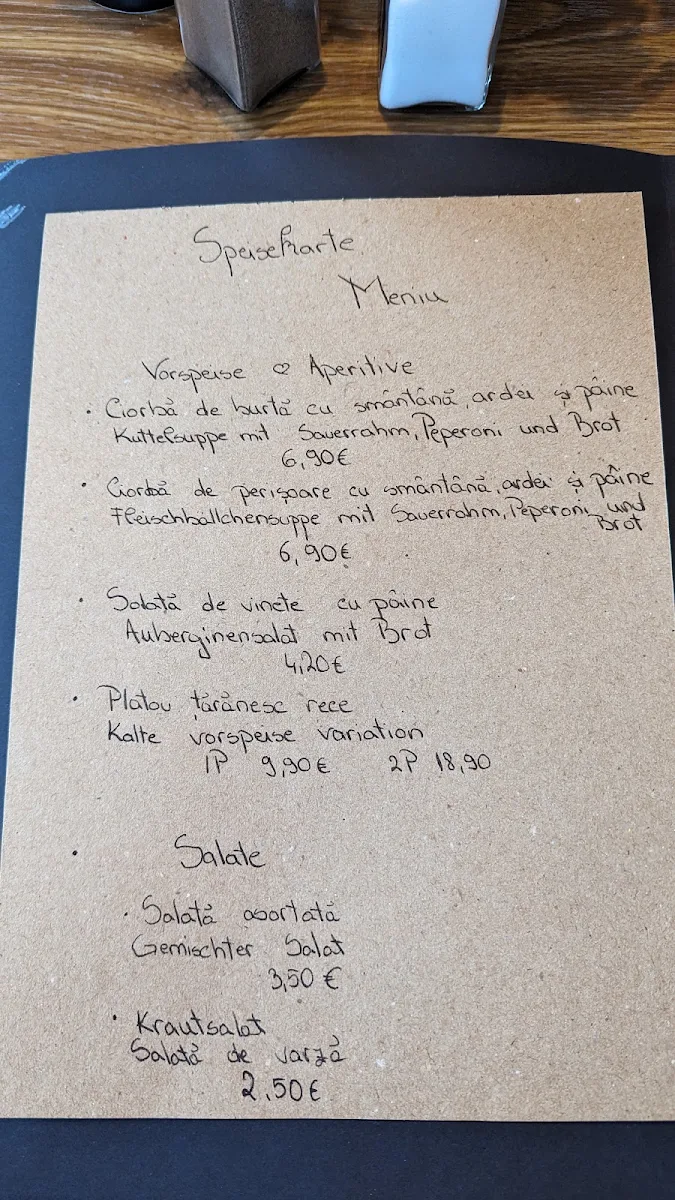 Speisekarte
Meniu
Vorspeise ♡ Aperitive
• Ciorbă de burtă cu smântână, ardei și pâine
Kuttelsuppe mit Sauerrahm, Peperoni und Brot
6,90€
• Ciorbă de perișoare cu smântână, ardei și pâine
Fleischbällchensuppe mit Sauerrahm, Peperoni und
Brot
6,90€
• Salată de vinete cu pâine
Auberginensalat mit Brot
4,20€
• Platou țărănesc rece
Kalte vorspeise variation
1P 9,90€ 2P 18,90
• Salate
• Salată asortată
Gemischter Salat
3,50 €
• Krautsalat
Salată de varză
2,50€